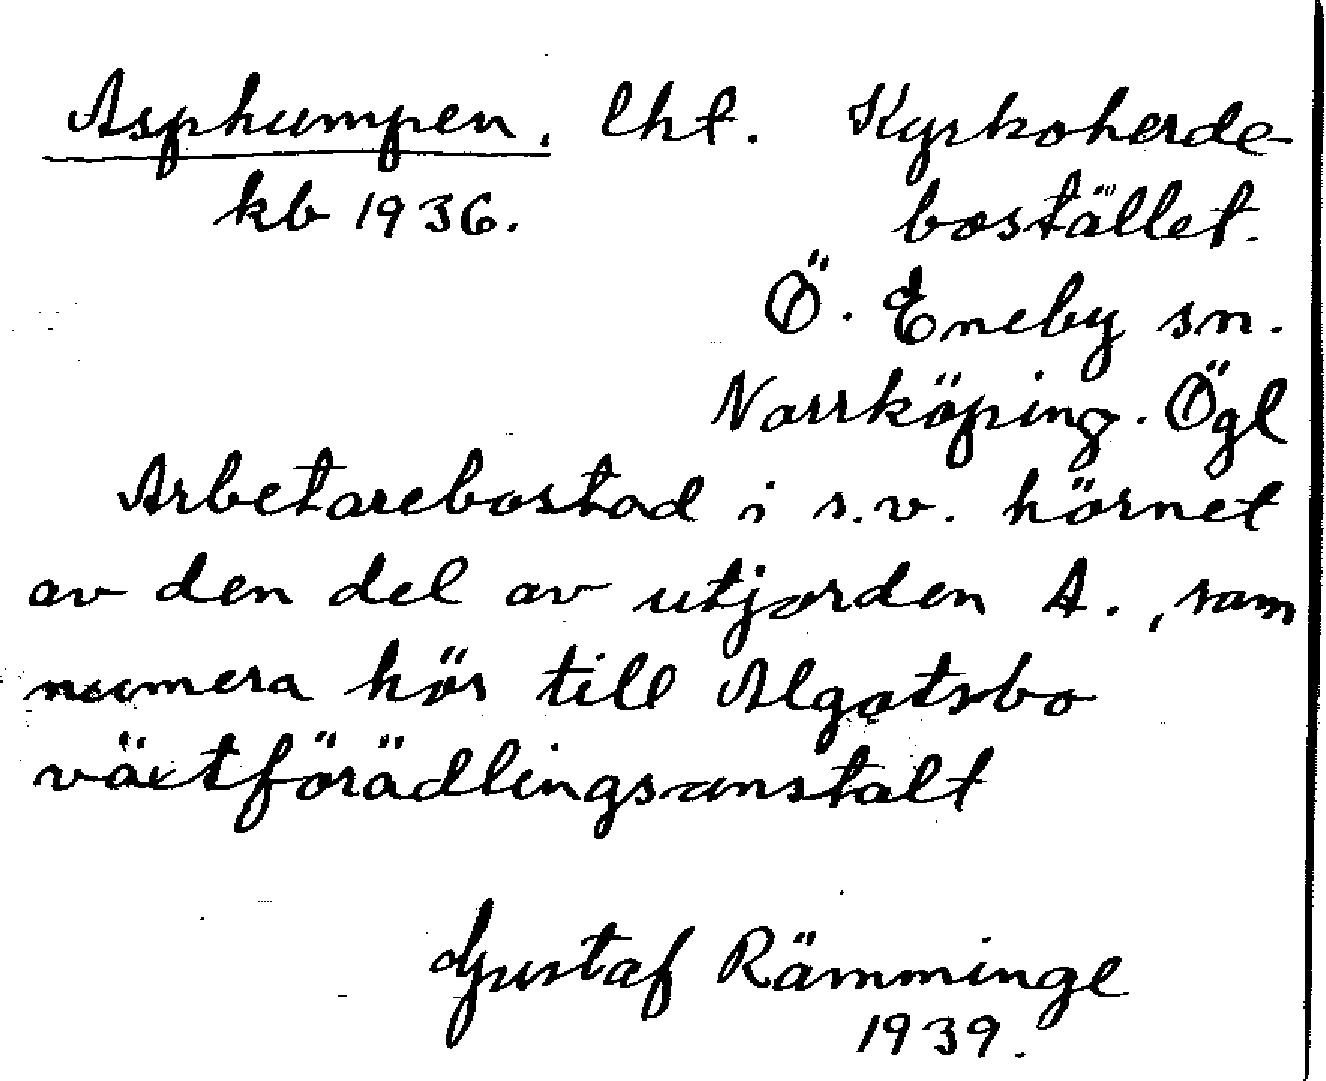 Asphumpen. lht. Kyrkoherde-
kb 1936. bostället.
Ö. Eneby sn.
Norrköping. Ögl
Arbetarebostad i s.v. hörnet
av den del av utjorden A., som
numera hör till Algotsbo
växtförädlingsanstalt
Gustaf Rämminge
1939.